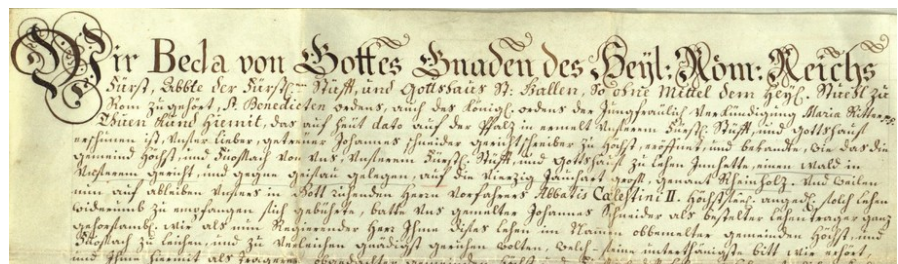 Wir Beda von Gottes Gnaden des Heyl: Röm: Reichs
Fürst, Abbte der Fürstl. Stufft, und Gottshaus St: Gallen, So ohne Mittel dem Heyl. Stuehl zu
Rom zu gehört, St. Benedicten ordens, auch des Königl. ordens der Jungfräulich Verkündigung Maria Ritter
Thuen Kund hiemit, das auf heüt dato auf der Pfalz in ermelt Unserem Fürstl. Stufft, und Gottshauß
erschinen ist, Unser lieber, getreüer Johannes Schneider gerichtschreiber zu Höchst, eröffnet, und bekandte, wie das die
gemeind Höchst, und Fuossach von Uns, Unserem Fürstl. Stufft, und Gottshauß zu lehen Innhette, einen wald in
Unserem gericht, und gegne geissau gelegen, auf die vierzig Jauchart groß, genant Rheinholz. Und weilen
nun auf ableiben Unsers in Gott ruhenden Herrn Vorfahrers Abbatis Cœlestini II. Höchstseel. angedenkh solch lehen
widerumb zu empfangen sich gebührte, batte Uns gemelter Johannes Schneider als bestelter lehentrager ganz
gehorsambl. wir als nun Regierender Herr Ihme dises lehen im Namen obbemelter gemeinden Höchst, und
Fuossach zu leihen, und zu verleichen gnädigst geruhen wolten, welch seine unterthänigste bitt wir erhört,
und Ihme hiermit als trageren obgedachter gemeinden Höchst, und